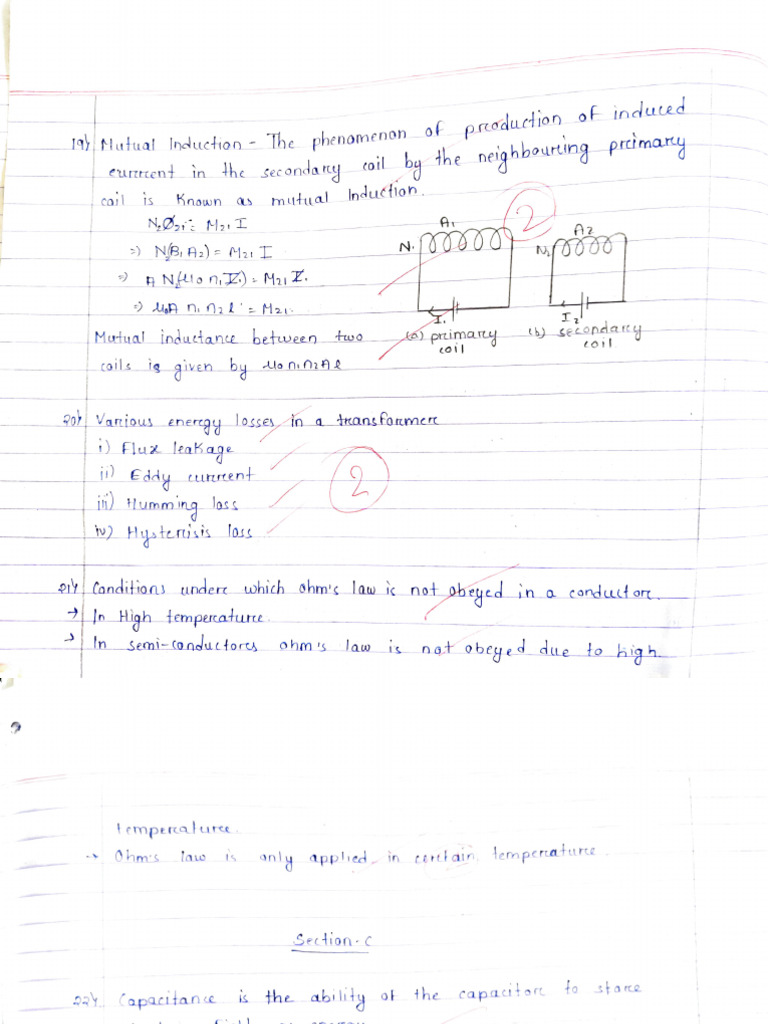 19) Mutual Induction - The phenomenon of production of induced
current in the secondary coil by the neighbouring primary
coil is known as mutual Induction.
N₂Ø₂₁ = M₂₁ I
⇒ N₂(B₁A₂) = M₂₁ I
⇒ A N₂(μ₀ n₁ I₁) = M₂₁ I.
⇒ μ₀A n₁ n₂ l = M₂₁.
A₁
N₁
I₁
(a) primary
coil
A₂
N₂
I₂
(b) secondary
coil
2
Mutual inductance between two
coils is given by μ₀ n₁n₂Al
20) Various energy losses in a transformer
i) Flux leakage
ii) Eddy current
iii) Humming loss
iv) Hysterisis loss
2
21) Conditions under which ohm's law is not obeyed in a conductor.
→ In High temperature.
→ In semi-conductors ohm's law is not obeyed due to high
temperature.
→ Ohm's law is only applied in certain temperature.
Section-C
22) Capacitance is the ability of the capacitor to store